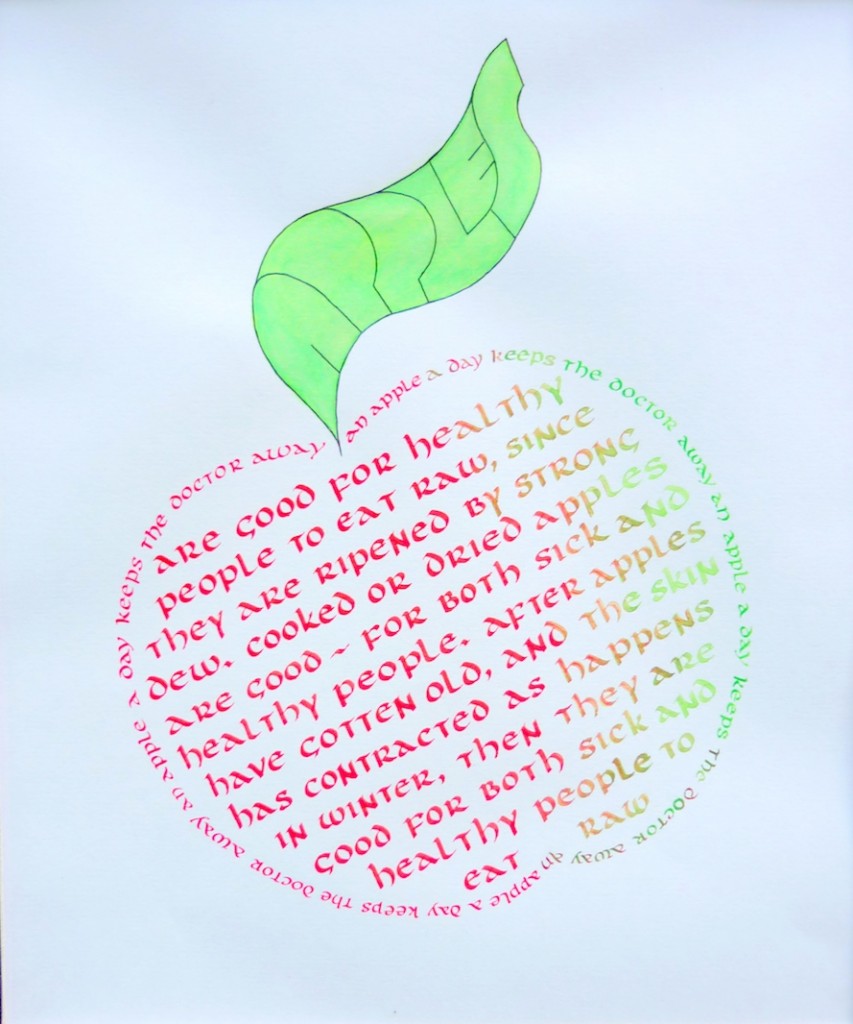 APPLES
an apple a day keeps the doctor away an apple a day keeps the doctor away an apple a day keeps the doctor away an apple a day keeps the doctor away
are good for healthy
people to eat raw, since
they are ripened by strong
dew. cooked or dried apples
are good ~ for both sick and
healthy people. after apples
have gotten old, and the skin
has contracted as happens
in winter, then they are
good for both sick and
healthy people to
eat raw